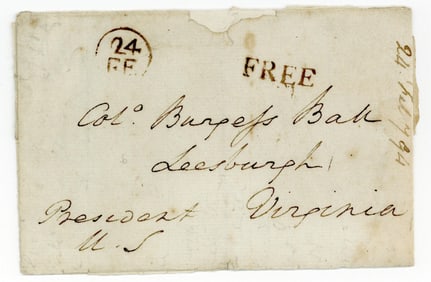 24
FE
FREE
Colo. Burgess Ball
Leesburgh
President Virginia
U.S
24 Feb 1794